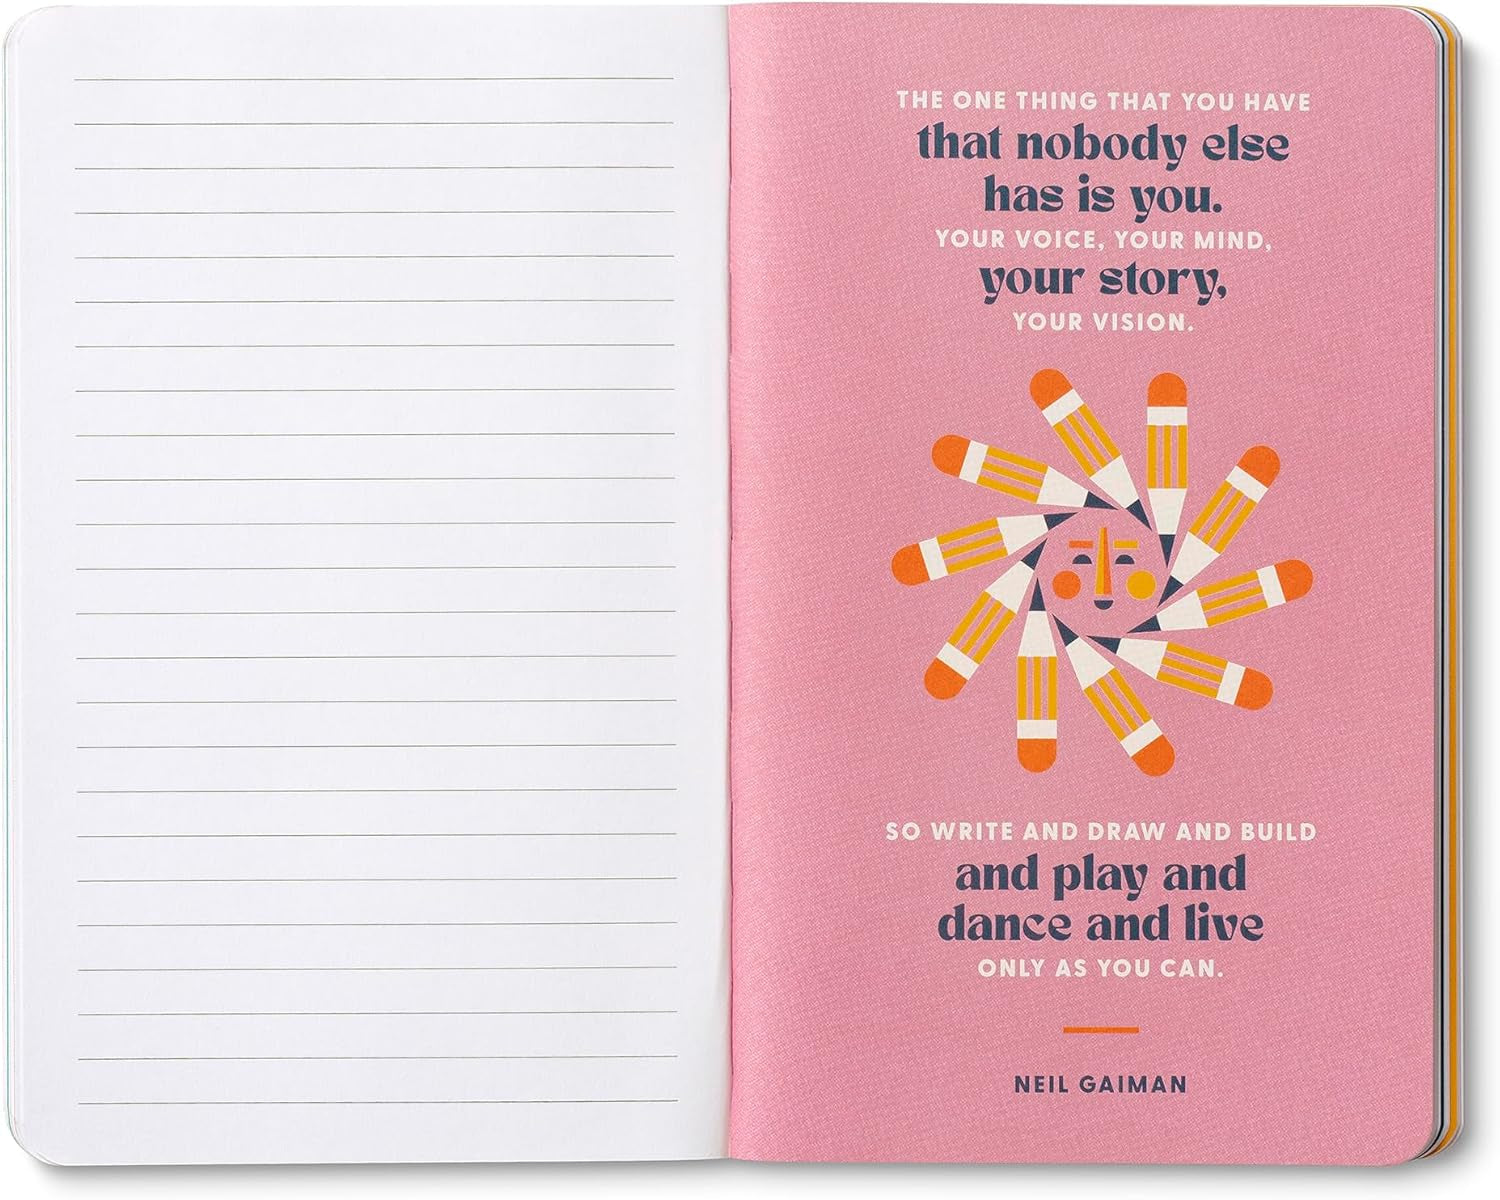 THE ONE THING THAT YOU HAVE
that nobody else
has is you.
YOUR VOICE, YOUR MIND,
your story,
YOUR VISION.
SO WRITE AND DRAW AND BUILD
and play and
dance and live
ONLY AS YOU CAN.
NEIL GAIMAN